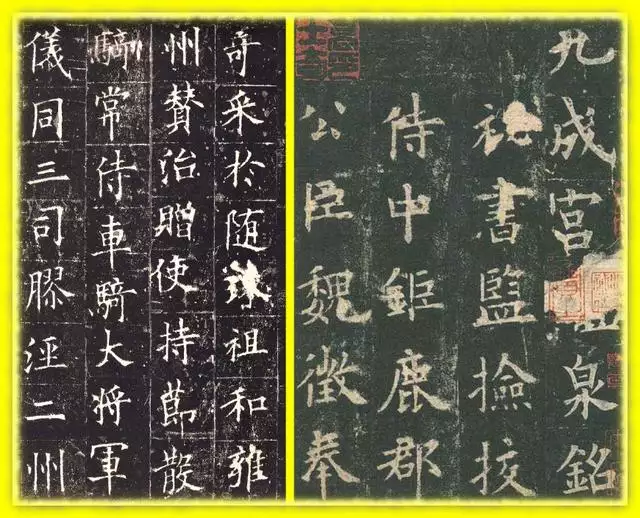 九成宮泉銘
祕書監撿挍
侍中鉅鹿郡
公臣魏徵奉
奇采於随祖和雍
州賛治贈使持節散
騎常侍車騎大将軍
儀同三司膠涇二州